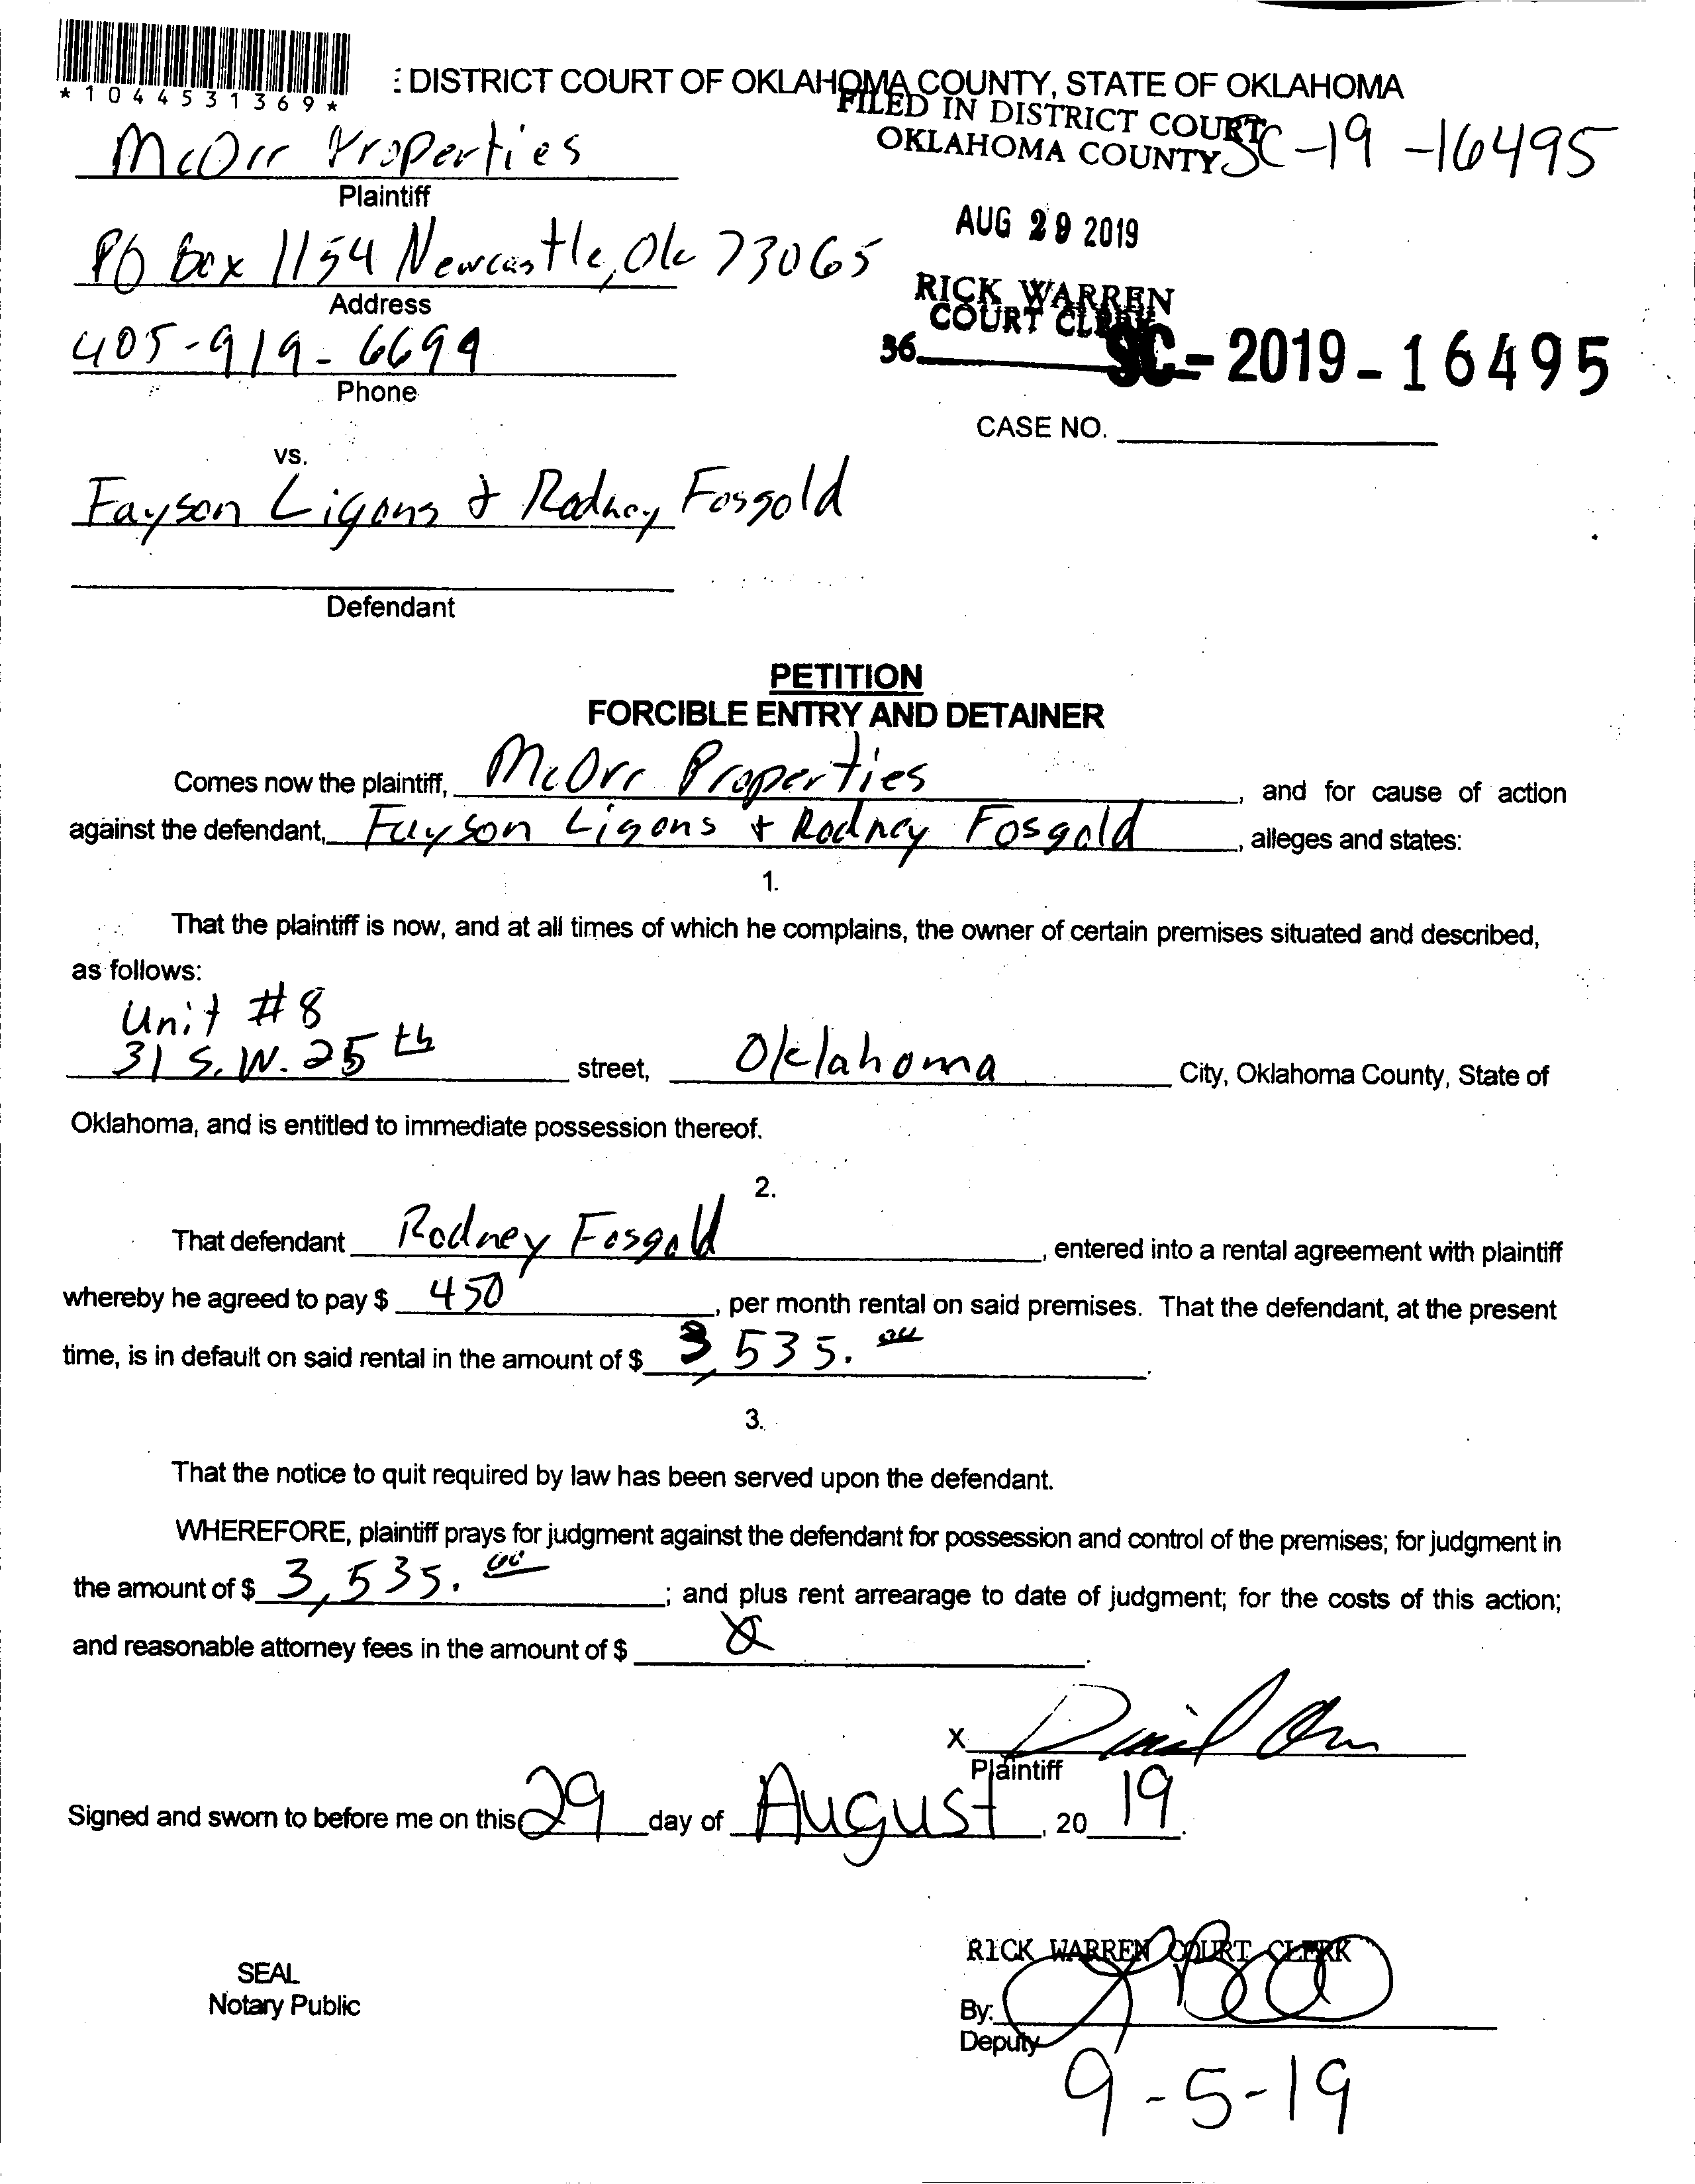 *1044531369*
: DISTRICT COURT OF OKLAHOMA COUNTY, STATE OF OKLAHOMA
FILED IN DISTRICT COURT
OKLAHOMA COUNTY
SC-19-16495
McOrr Properties
Plaintiff
AUG 29 2019
PO Box 1154 Newcastle, Ok 73065
Address
RICK WARREN
COURT CLERK
405-919-6699
36
SC-2019-16495
Phone
CASE NO.
vs.
Fayson Ligons & Rodney Fosgold
Defendant
PETITION
FORCIBLE ENTRY AND DETAINER
Comes now the plaintiff, McOrr Properties, and for cause of action
against the defendant, Fayson Ligons + Rodney Fosgold, alleges and states:
1.
That the plaintiff is now, and at all times of which he complains, the owner of certain premises situated and described,
as follows:
Unit #8
31 S.W. 25th street, Oklahoma City, Oklahoma County, State of
Oklahoma, and is entitled to immediate possession thereof.
2.
That defendant Rodney Fosgold, entered into a rental agreement with plaintiff
whereby he agreed to pay $ 450, per month rental on said premises. That the defendant, at the present
time, is in default on said rental in the amount of $ 3,535.00.
3.
That the notice to quit required by law has been served upon the defendant.
WHEREFORE, plaintiff prays for judgment against the defendant for possession and control of the premises; for judgment in
the amount of $ 3,535.00; and plus rent arrearage to date of judgment; for the costs of this action;
and reasonable attorney fees in the amount of $
X
Plaintiff
Signed and sworn to before me on this 29 day of August, 2019.
RICK WARREN COURT CLERK
SEAL
Notary Public
By:
Deputy
9-5-19